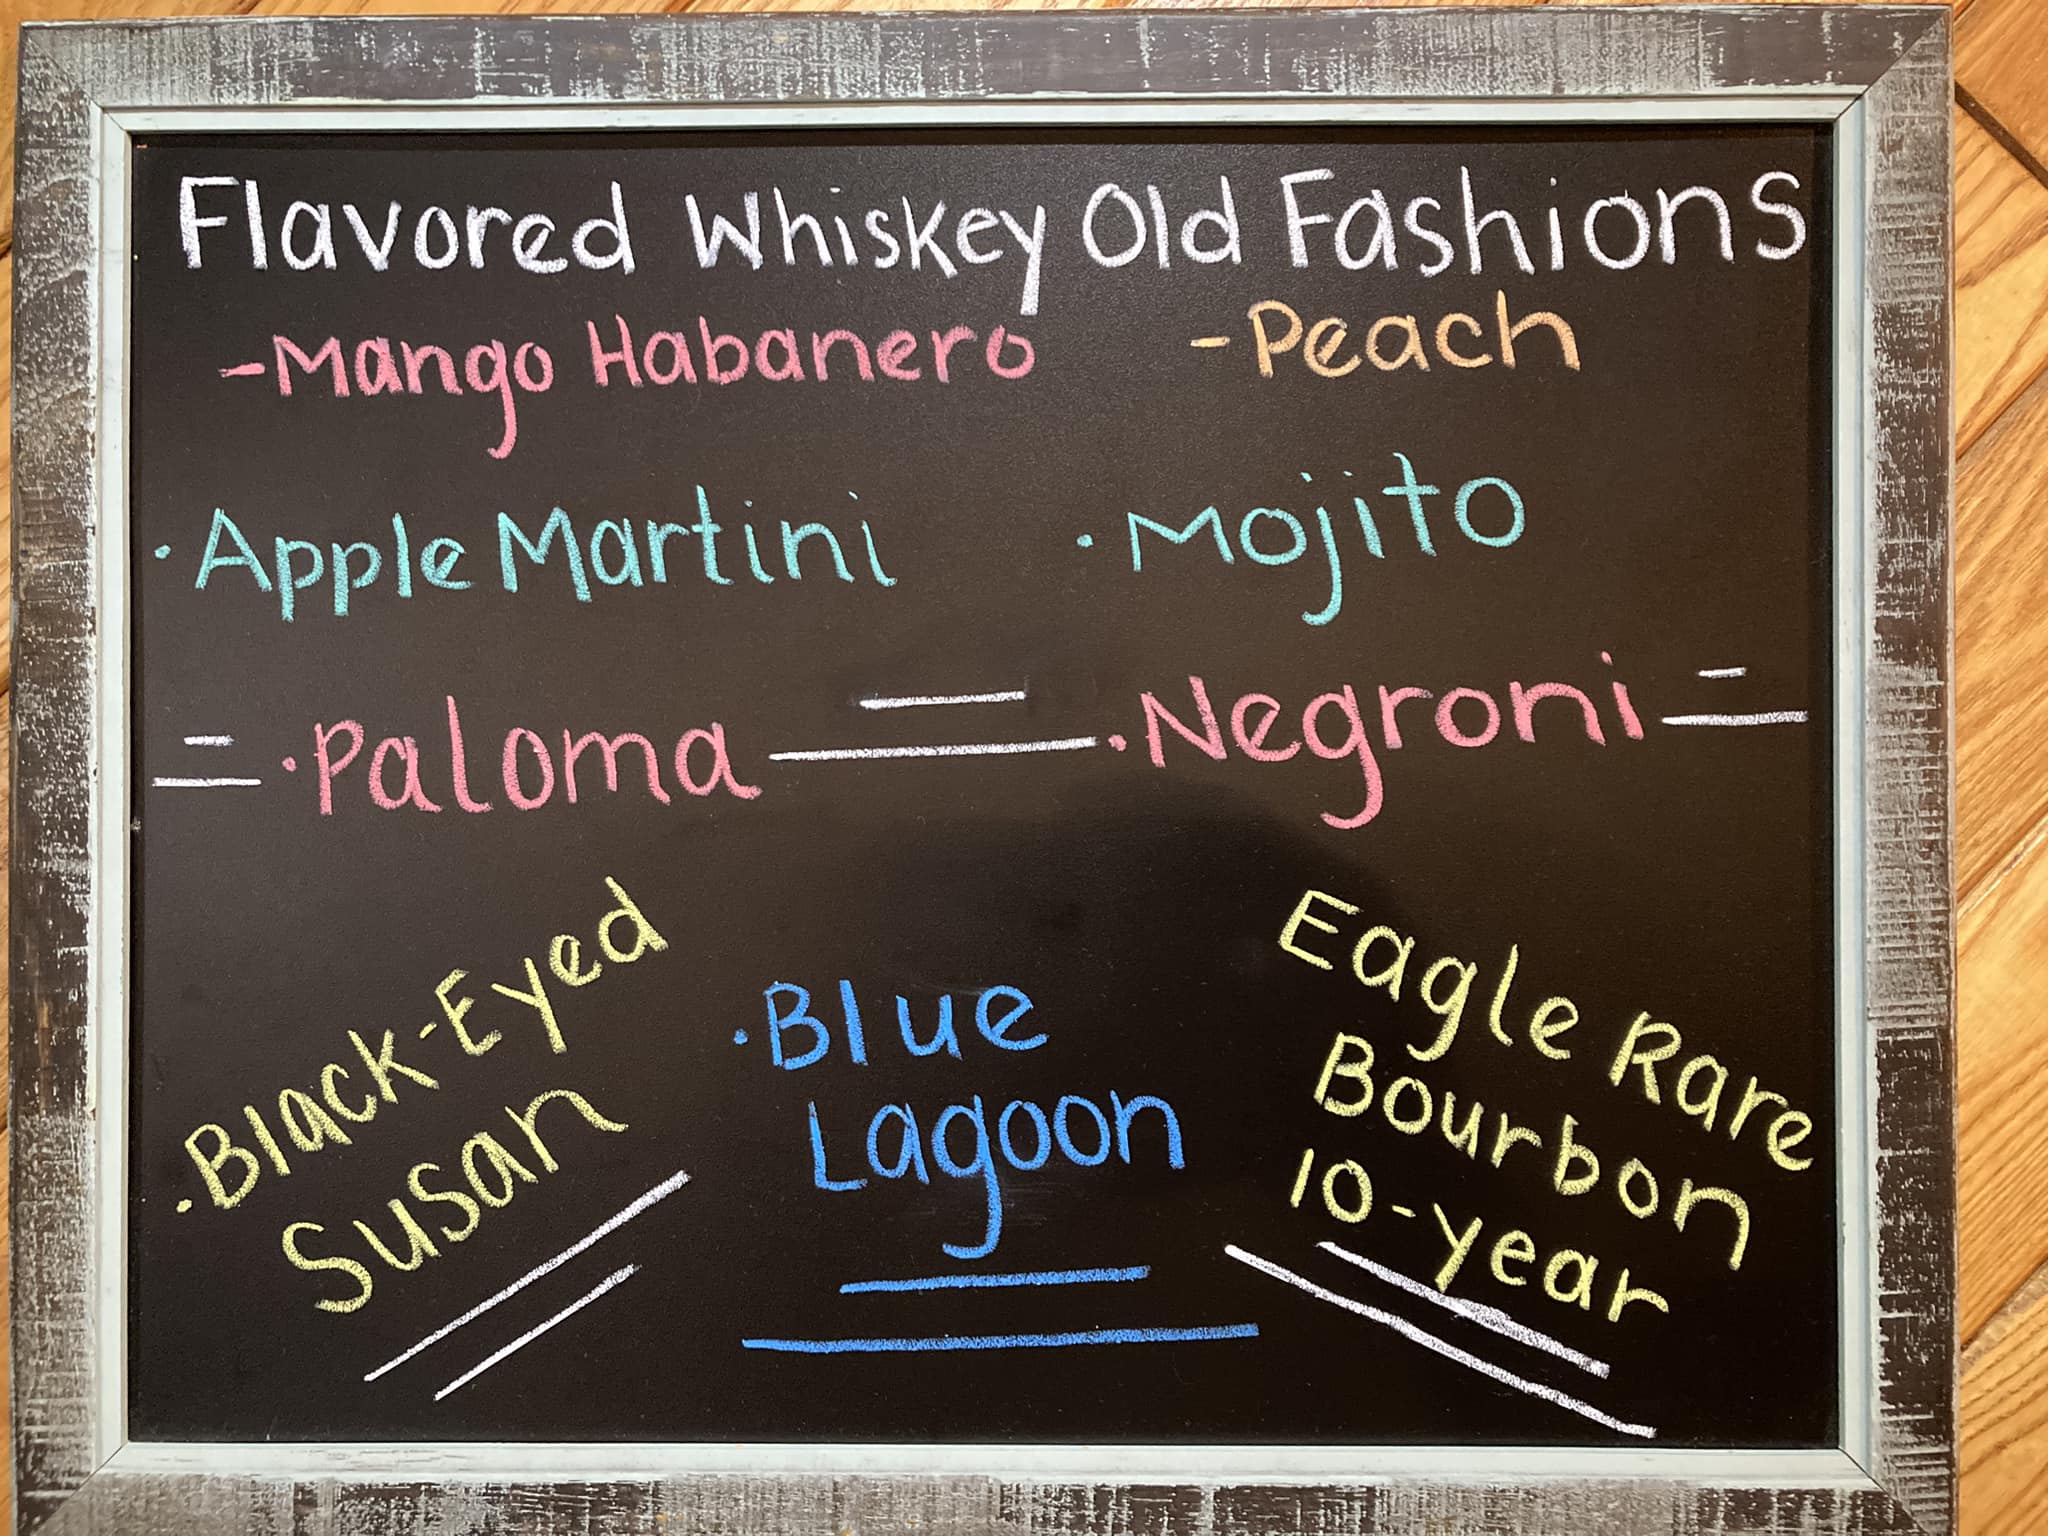 Flavored Whiskey Old Fashions
-Mango Habanero -Peach
·Apple Martini ·Mojito
·Paloma ·Negroni
·Black-Eyed
Susan
·Blue
Lagoon
Eagle Rare
Bourbon
10-year